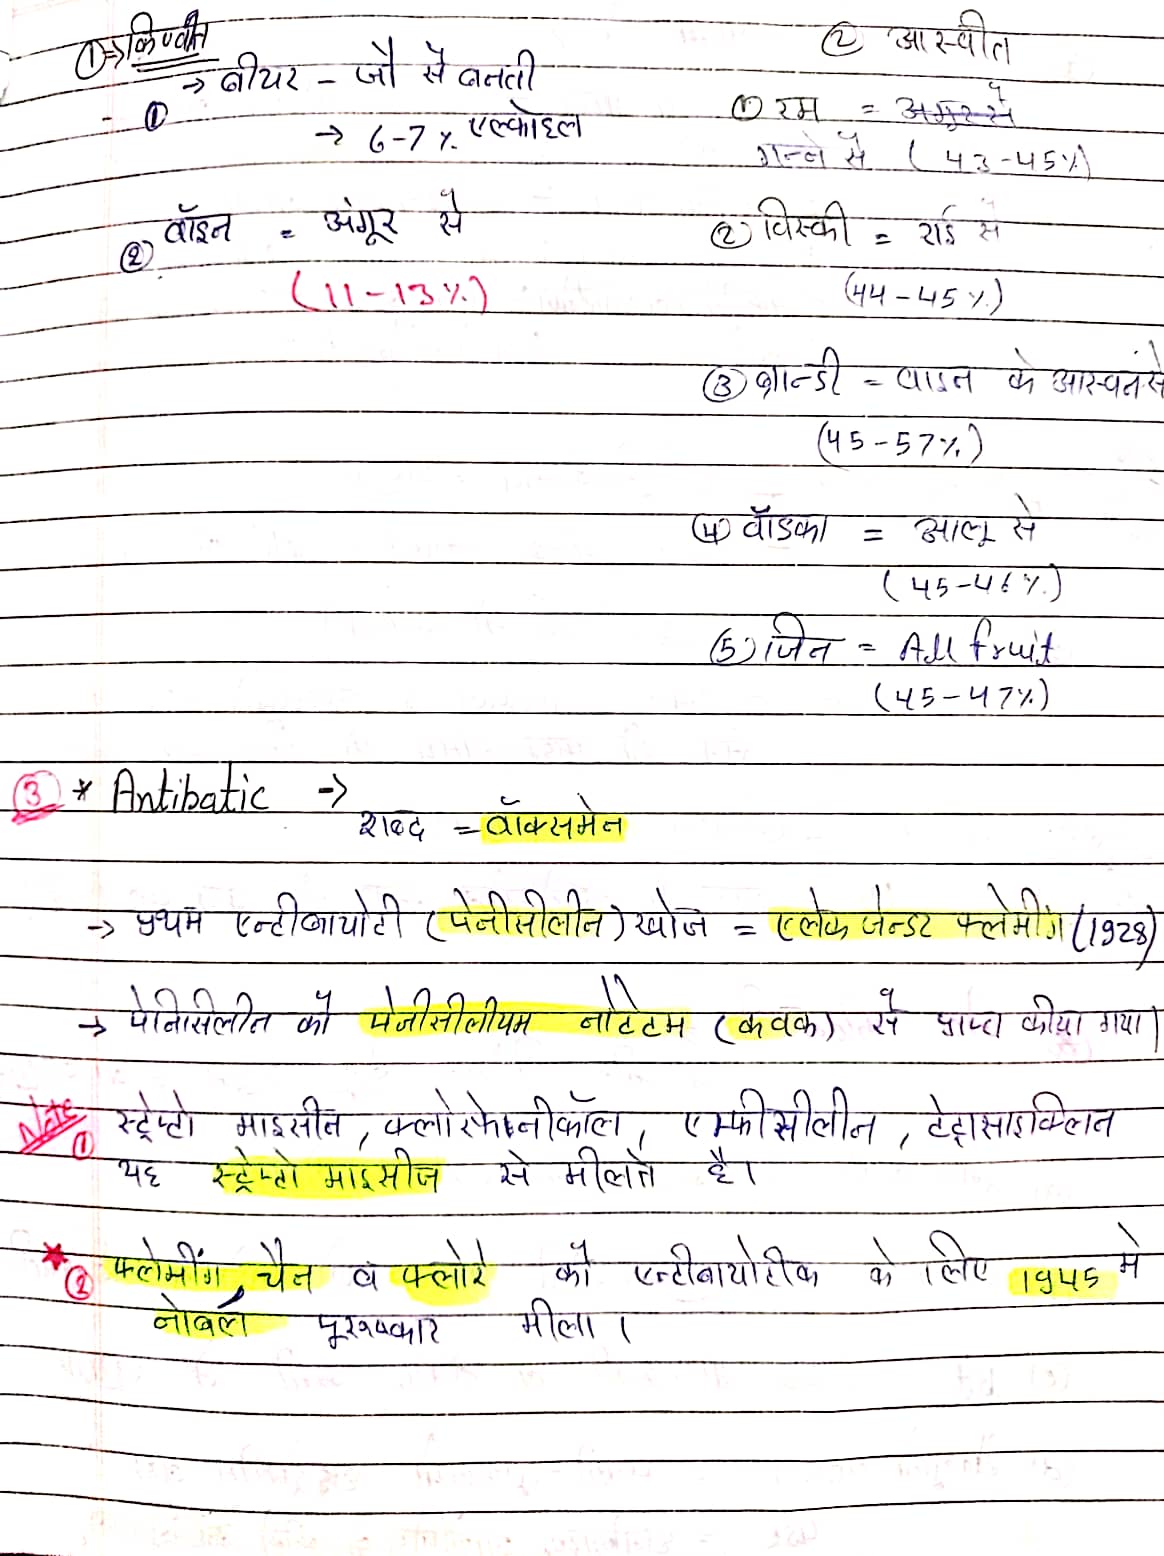 ① → किण्वीत
→ बीयर - जौ से बनती
①
→ 6-7 % एल्कोहल
② वॉइन = अंगूर से
(11-13%)
② आस्वीत
① रम = अंगुर से
गन्ने से (43-45%)
② विस्की = राई से
(44-45%)
③ ब्रान्डी = वाइन के आस्वन से
(45-57%)
④ वॉडका = आलू से
(45-46%)
⑤ जिन = All fruit
(45-47%)
③ * Antibatic →
शब्द = वॉक्समेन
→ प्रथम एन्टीबायोटी (पेनीसीलीन) खोज = एलेकजेन्डर फ्लेमींग (1928)
→ पेनिसिलीन को पेनीसीलीयम नोटेटम (कवक) से प्राप्त कीया गया।
Note ① स्ट्रेप्टो माइसीन, क्लोरफेनीकॉल, एम्फीसीलीन, टेट्रासाइक्लिन
यह स्ट्रेप्टो माइसीज से मीलते है।
★ ② फ्लेमींग, चैन व फ्लोरे को एन्टीबायोटीक के लिए 1945 मे
नोबल पूरुष्कार मीला।